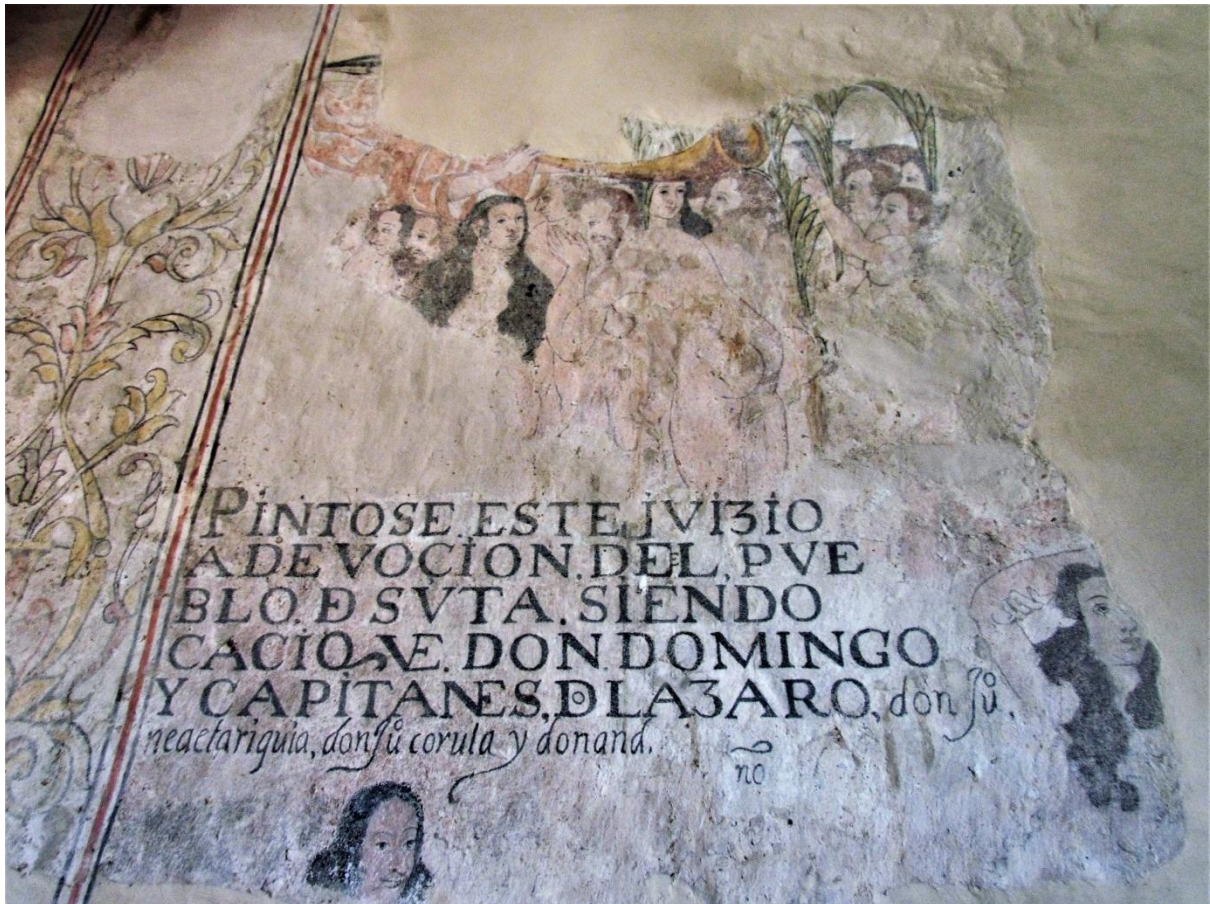 PINTOSE.ESTE JVIZIO
ADEVOCION.DEL.PVE
BLO.Đ SVTA.SIENDO
CACIQVE.DON.DOMINGO
Y CAPITANES,Dº LAZARO, don juº,
neaetariguia, don juº corula y donand.
no